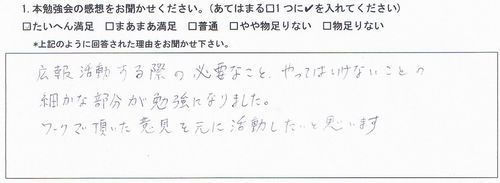 1. 本勉強会の感想をお聞かせください。(あてはまる口1つに✔を入れてください)
☑たいへん満足 □まあまあ満足 □普通 □やや物足りない □物足りない
*上記のように回答された理由をお聞かせ下さい。
広報活動する際の必要なこと、やってはいけないことの
細かな部分が勉強になりました。
ワークで頂いた意見を元に活動したいと思います